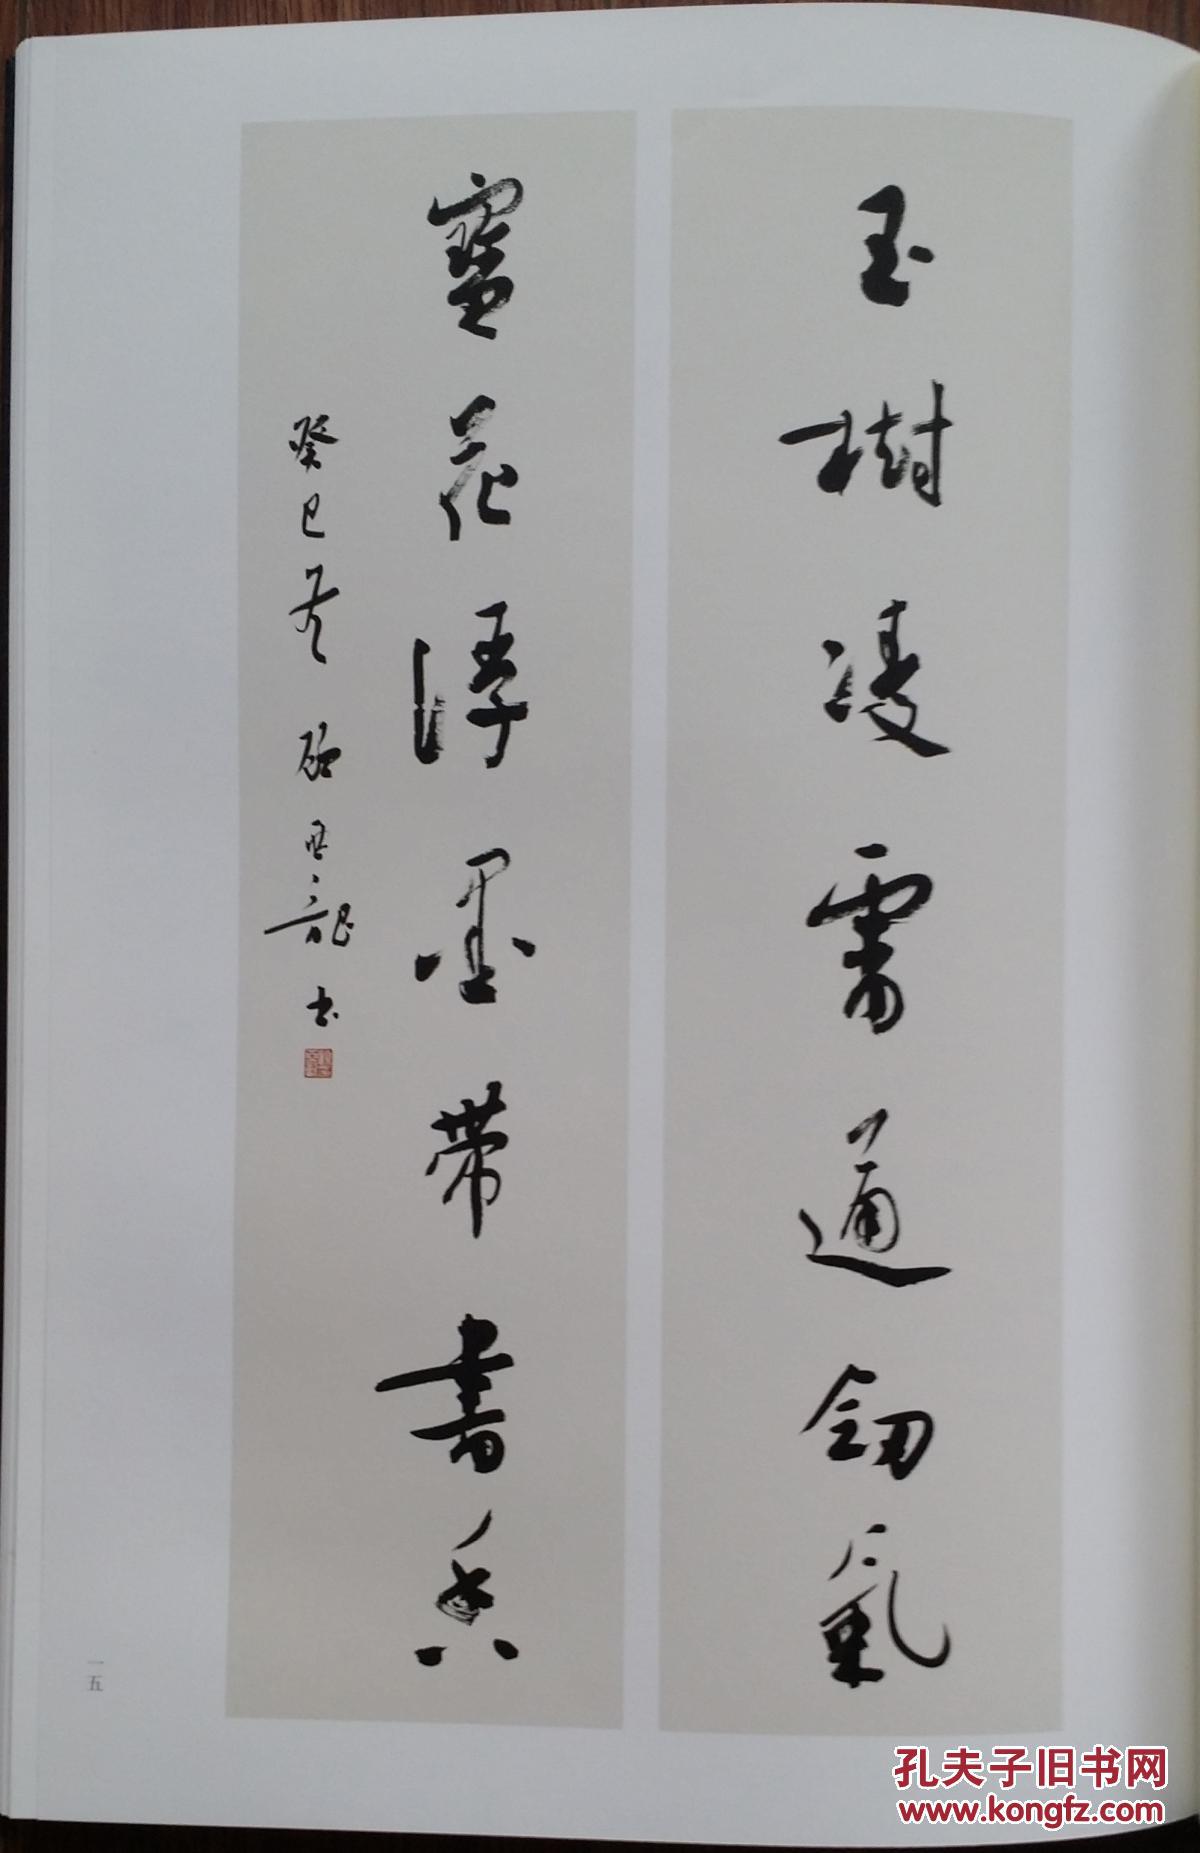 玉樹凌霄通劍氣
寶花浮墨帶書香
癸巳 顧亞龍書
一五
孔夫子旧书网
www.kongfz.com